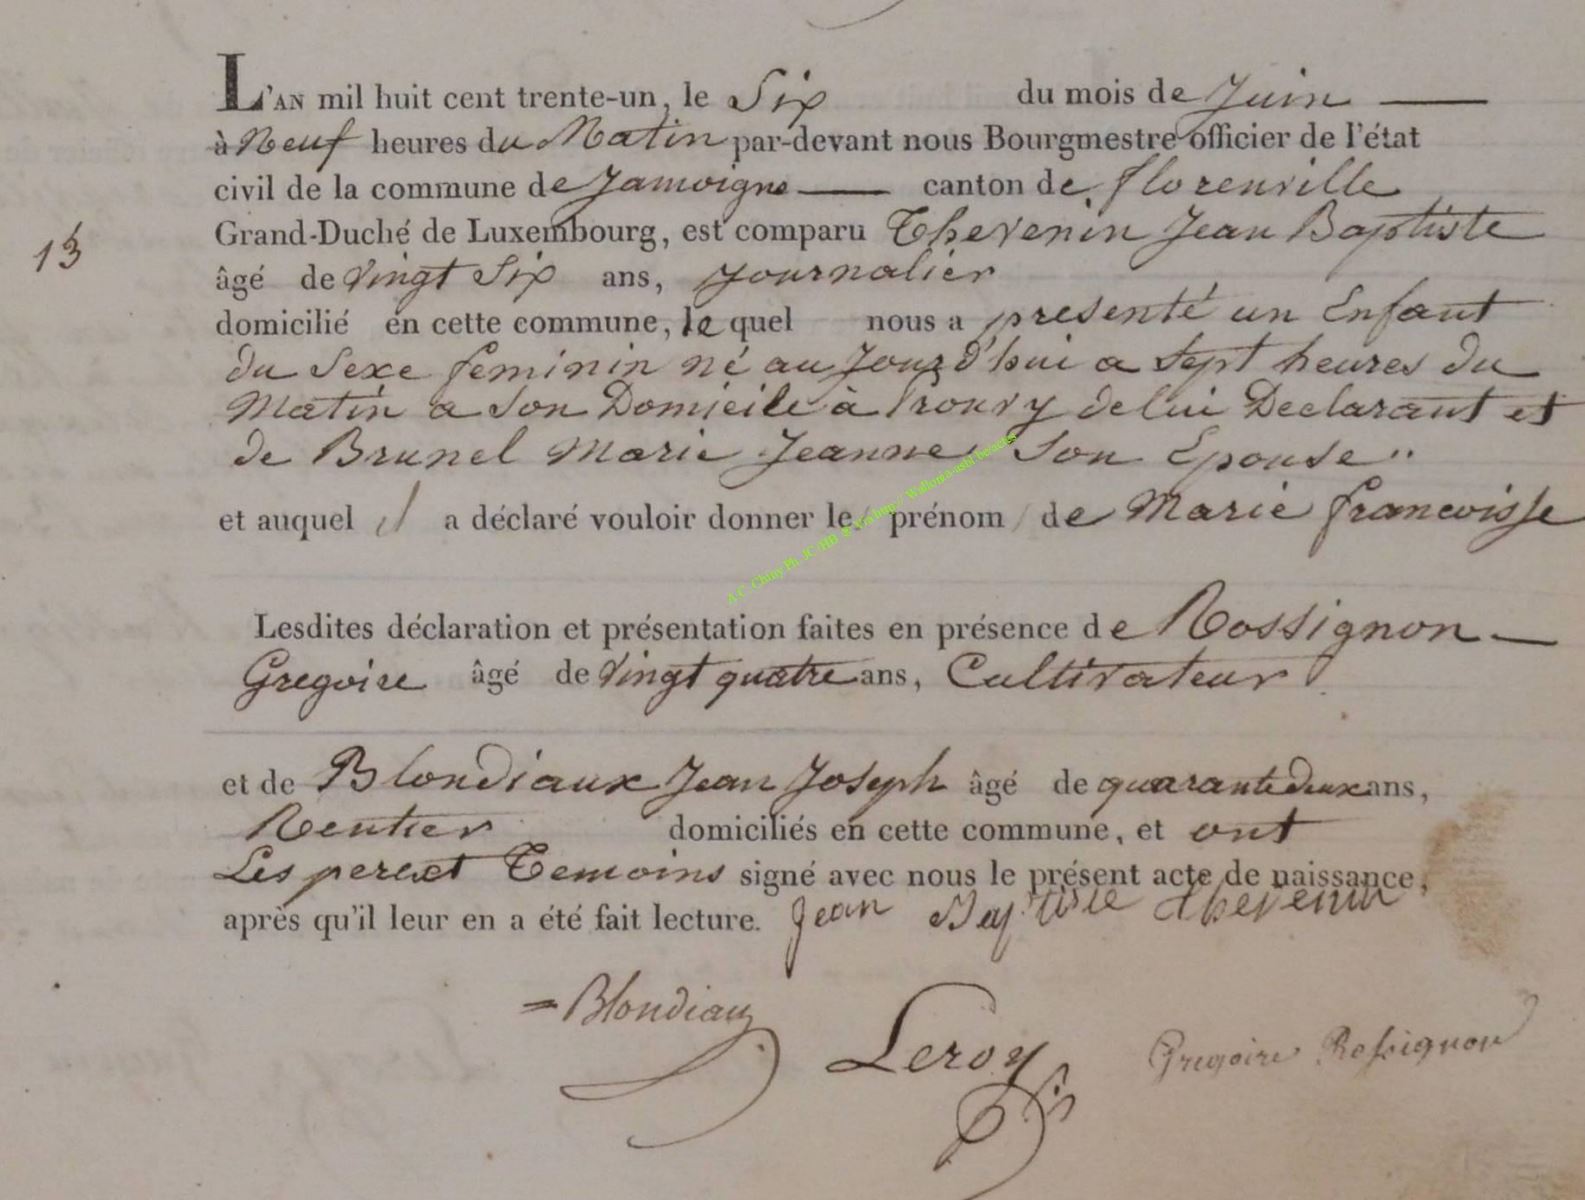 L'AN mil huit cent trente-un, le Six du mois de Juin
à Neuf heures du Matin par-devant nous Bourgmestre officier de l'état
civil de la commune de Jamoigne canton de florenville
13
Grand-Duché de Luxembourg, est comparu Thevenin Jean Baptiste
âgé de vingt Six ans, journalier
domicilié en cette commune, le quel nous a presenté un Enfant
du Sexe feminin né au Jourd'hui a Sept heures du
Matin a Son Domicile à Prouvy de lui Declarant et
de Brunel Marie Jeanne Son Epouse"
et auquel il a déclaré vouloir donner le prénom de Marie francoisse
Lesdites déclaration et présentation faites en présence de Rossignon
Gregoire âgé de vingt quatre ans, Cultivateur
et de Blondiaux Jean Joseph âgé de quarante deux ans,
Rentier domiciliés en cette commune, et ont
Les pere et Temoins signé avec nous le présent acte de naissance,
après qu'il leur en a été fait lecture. Jean Baptiste thevenin
=Blondiaux Leroy Gregoire Rossignon